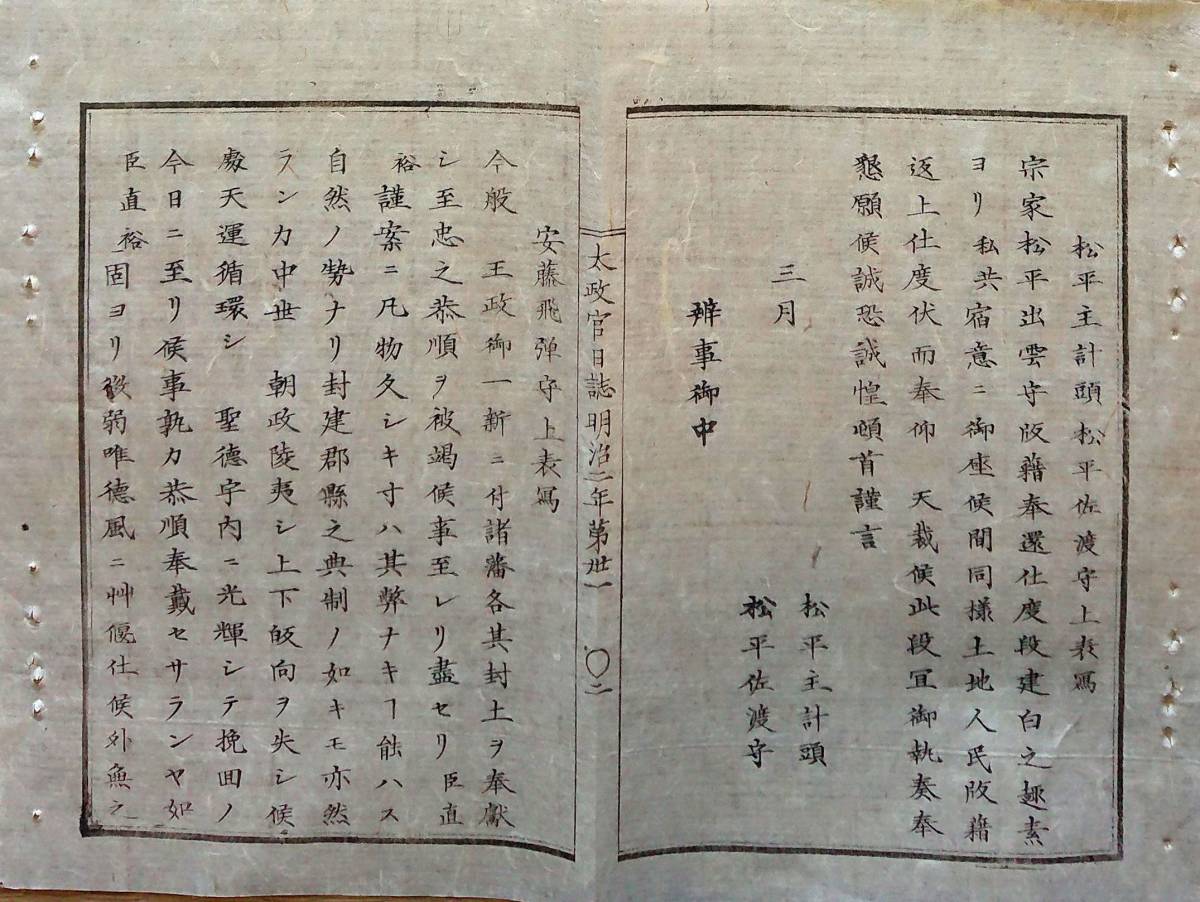 松平主計頭松平佐渡守上表写
宗家松平出雲守版籍奉還仕度段建白之趣素
ヨリ 私共宿意ニ御座候間同様土地人民版籍
返上仕度伏而奉仰 天裁候此段宜御執奏奉
懇願候誠恐誠惶頓首謹言
三月
松平主計頭
松平佐渡守
辨事御中
太政官日誌明治二年第卅一 〇二
安藤飛弾守上表写
今般 王政御一新ニ付諸藩各其封土ヲ奉獻
シ至忠之恭順ヲ被竭候事至レリ盡セリ臣直
裕謹案ニ凡物久シキ寸ハ其弊ナキヿ能ハス
自然ノ勢ナリ封建郡縣之典制ノ如キモ亦然
ランカ中世 朝政陵夷シ上下皈向ヲ失シ候
處天運循環シ 聖德宇内ニ光輝シテ挽回ノ
今日ニ至リ候事孰カ恭順奉戴セサランヤ如
臣直裕固ヨリ微弱唯德風ニ艸偃仕候外無之